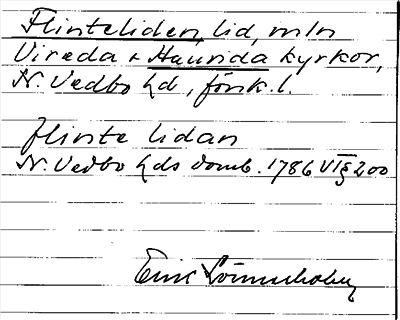 Flinteliden, lid, mln
Vireda + Haurida kyrkor,
N. Vedbo hd, jönk. l.
Flinte lidan
N. Vedbo hds domb. 1786 VI § 200
Eric